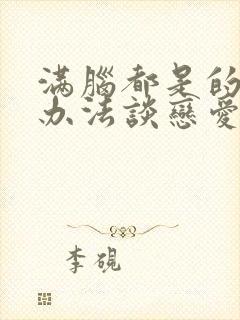 滿腦都是的
办法談戀愛
李硯